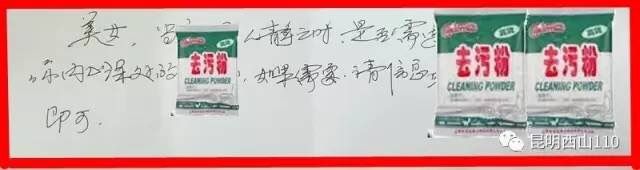 美女，当
人静之时，是否需
内心深处的
，如果需要，请信息
即可.
去污粉
CLEANING POWDER
去污粉
CLEANING POWDER
去污粉
CLEANING POWDER
昆明西山110